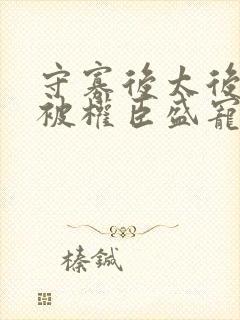 守寡後太後
被權臣盛寵
榛鋮